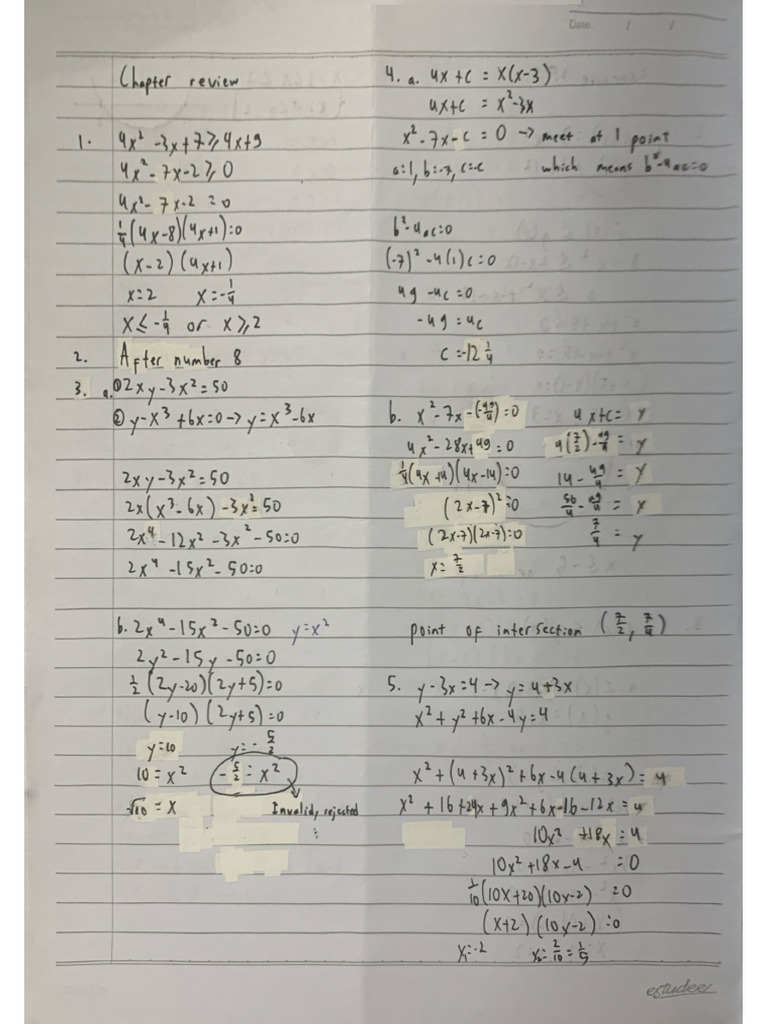 Date. / /
Chapter review
1. 4x² - 3x + 7 ≥ 4x + 9
4x² - 7x - 2 ≥ 0
4x² - 7x - 2 = 0
¼(4x-8)(4x+1)=0
(x-2)(4x+1)
x=2 x=-¼
x ≤ -¼ or x ≥ 2
2. After number 8
3. a. ① 2xy - 3x² = 50
② y - x³ + 6x = 0 → y = x³ - 6x
2xy - 3x² = 50
2x(x³ - 6x) - 3x² = 50
2x⁴ - 12x² - 3x² - 50 = 0
2x⁴ - 15x² - 50 = 0
b. 2x⁴ - 15x² - 50 = 0 y = x²
2y² - 15y - 50 = 0
½(2y-20)(2y+5)=0
(y-10)(2y+5)=0
y=10 y=-5/2
10 = x² -5/2 = x²
√10 = x Invalid, rejected
4. a. 4x + c = x(x-3)
4x + c = x² - 3x
x² - 7x - c = 0 → meet at 1 point
a=1, b=-7, c=-c which means b²-4ac=0
b²-4ac=0
(-7)² - 4(1)c = 0
49 - 4c = 0
-49 = 4c
c = -12¼
b. x² - 7x - (-49/4) = 0 4x+c = y
4x² - 28x + 49 = 0 4(7/2) - 49/4 = y
¼(4x-14)(4x-14)=0 14 - 49/4 = y
(2x-7)² = 0 56/4 - 49/4 = x
(2x-7)(2x-7)=0 7/4 = y
x = 7/2
point of intersection (7/2, 7/4)
5. y - 3x = 4 → y = 4 + 3x
x² + y² + 6x - 4y = 4
x² + (4+3x)² + 6x - 4(4+3x) = 4
x² + 16 + 24x + 9x² + 6x - 16 - 12x = 4
10x² + 18x = 4
10x² + 18x - 4 = 0
1/10(10x+20)(10x-2) = 0
(x+2)(10x-2) = 0
x₁=-2 x₂=2/10=1/5
estudee